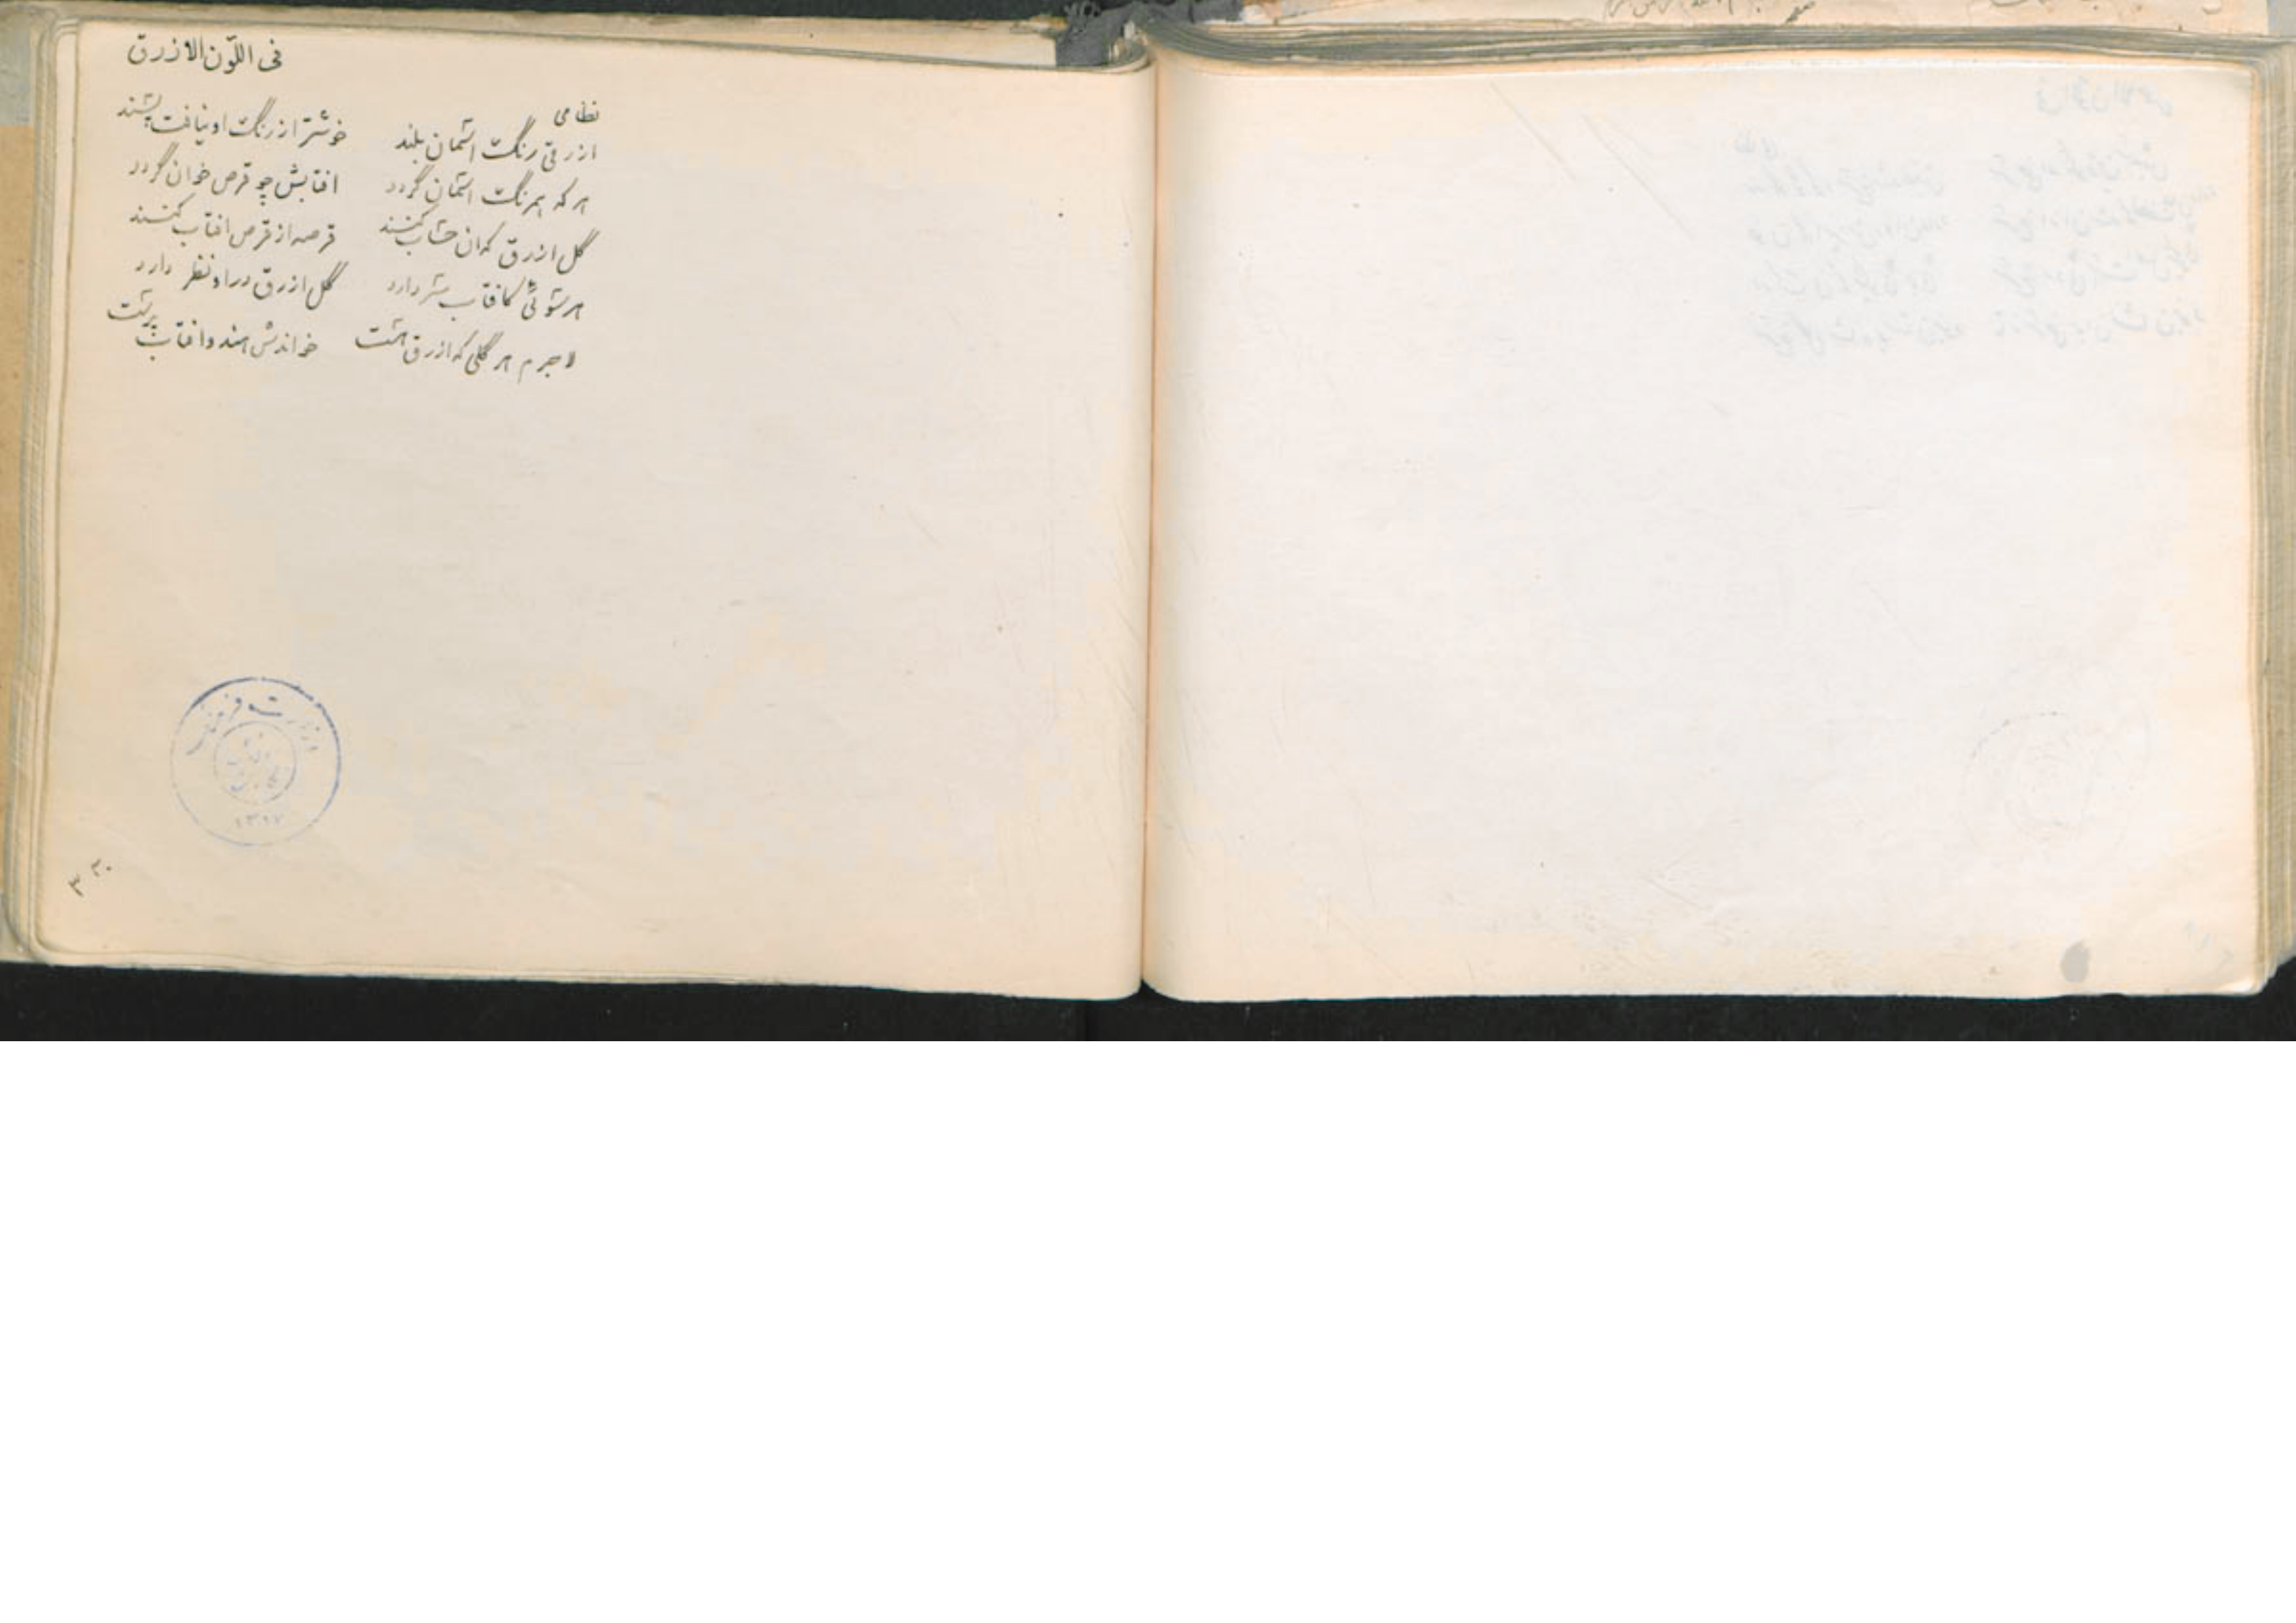 فی اللّون الازرق
نظامی
ازرقی رنگ اسمان بلند خوشتر از رنگ او نیافت پسند
هر که همرنگ اسمان گردد افتابش چو قرص خوان گردد
گل ازرق که ان حساب کنند قرصه از قرص افتاب کنند
هر سوئی کافتاب سر دارد گل ازرق در او نظر دارد
لاجرم هر گلی که ازرق هست خواندش هندو افتاب پرست
وزارت فرهنگ
۳۲۰